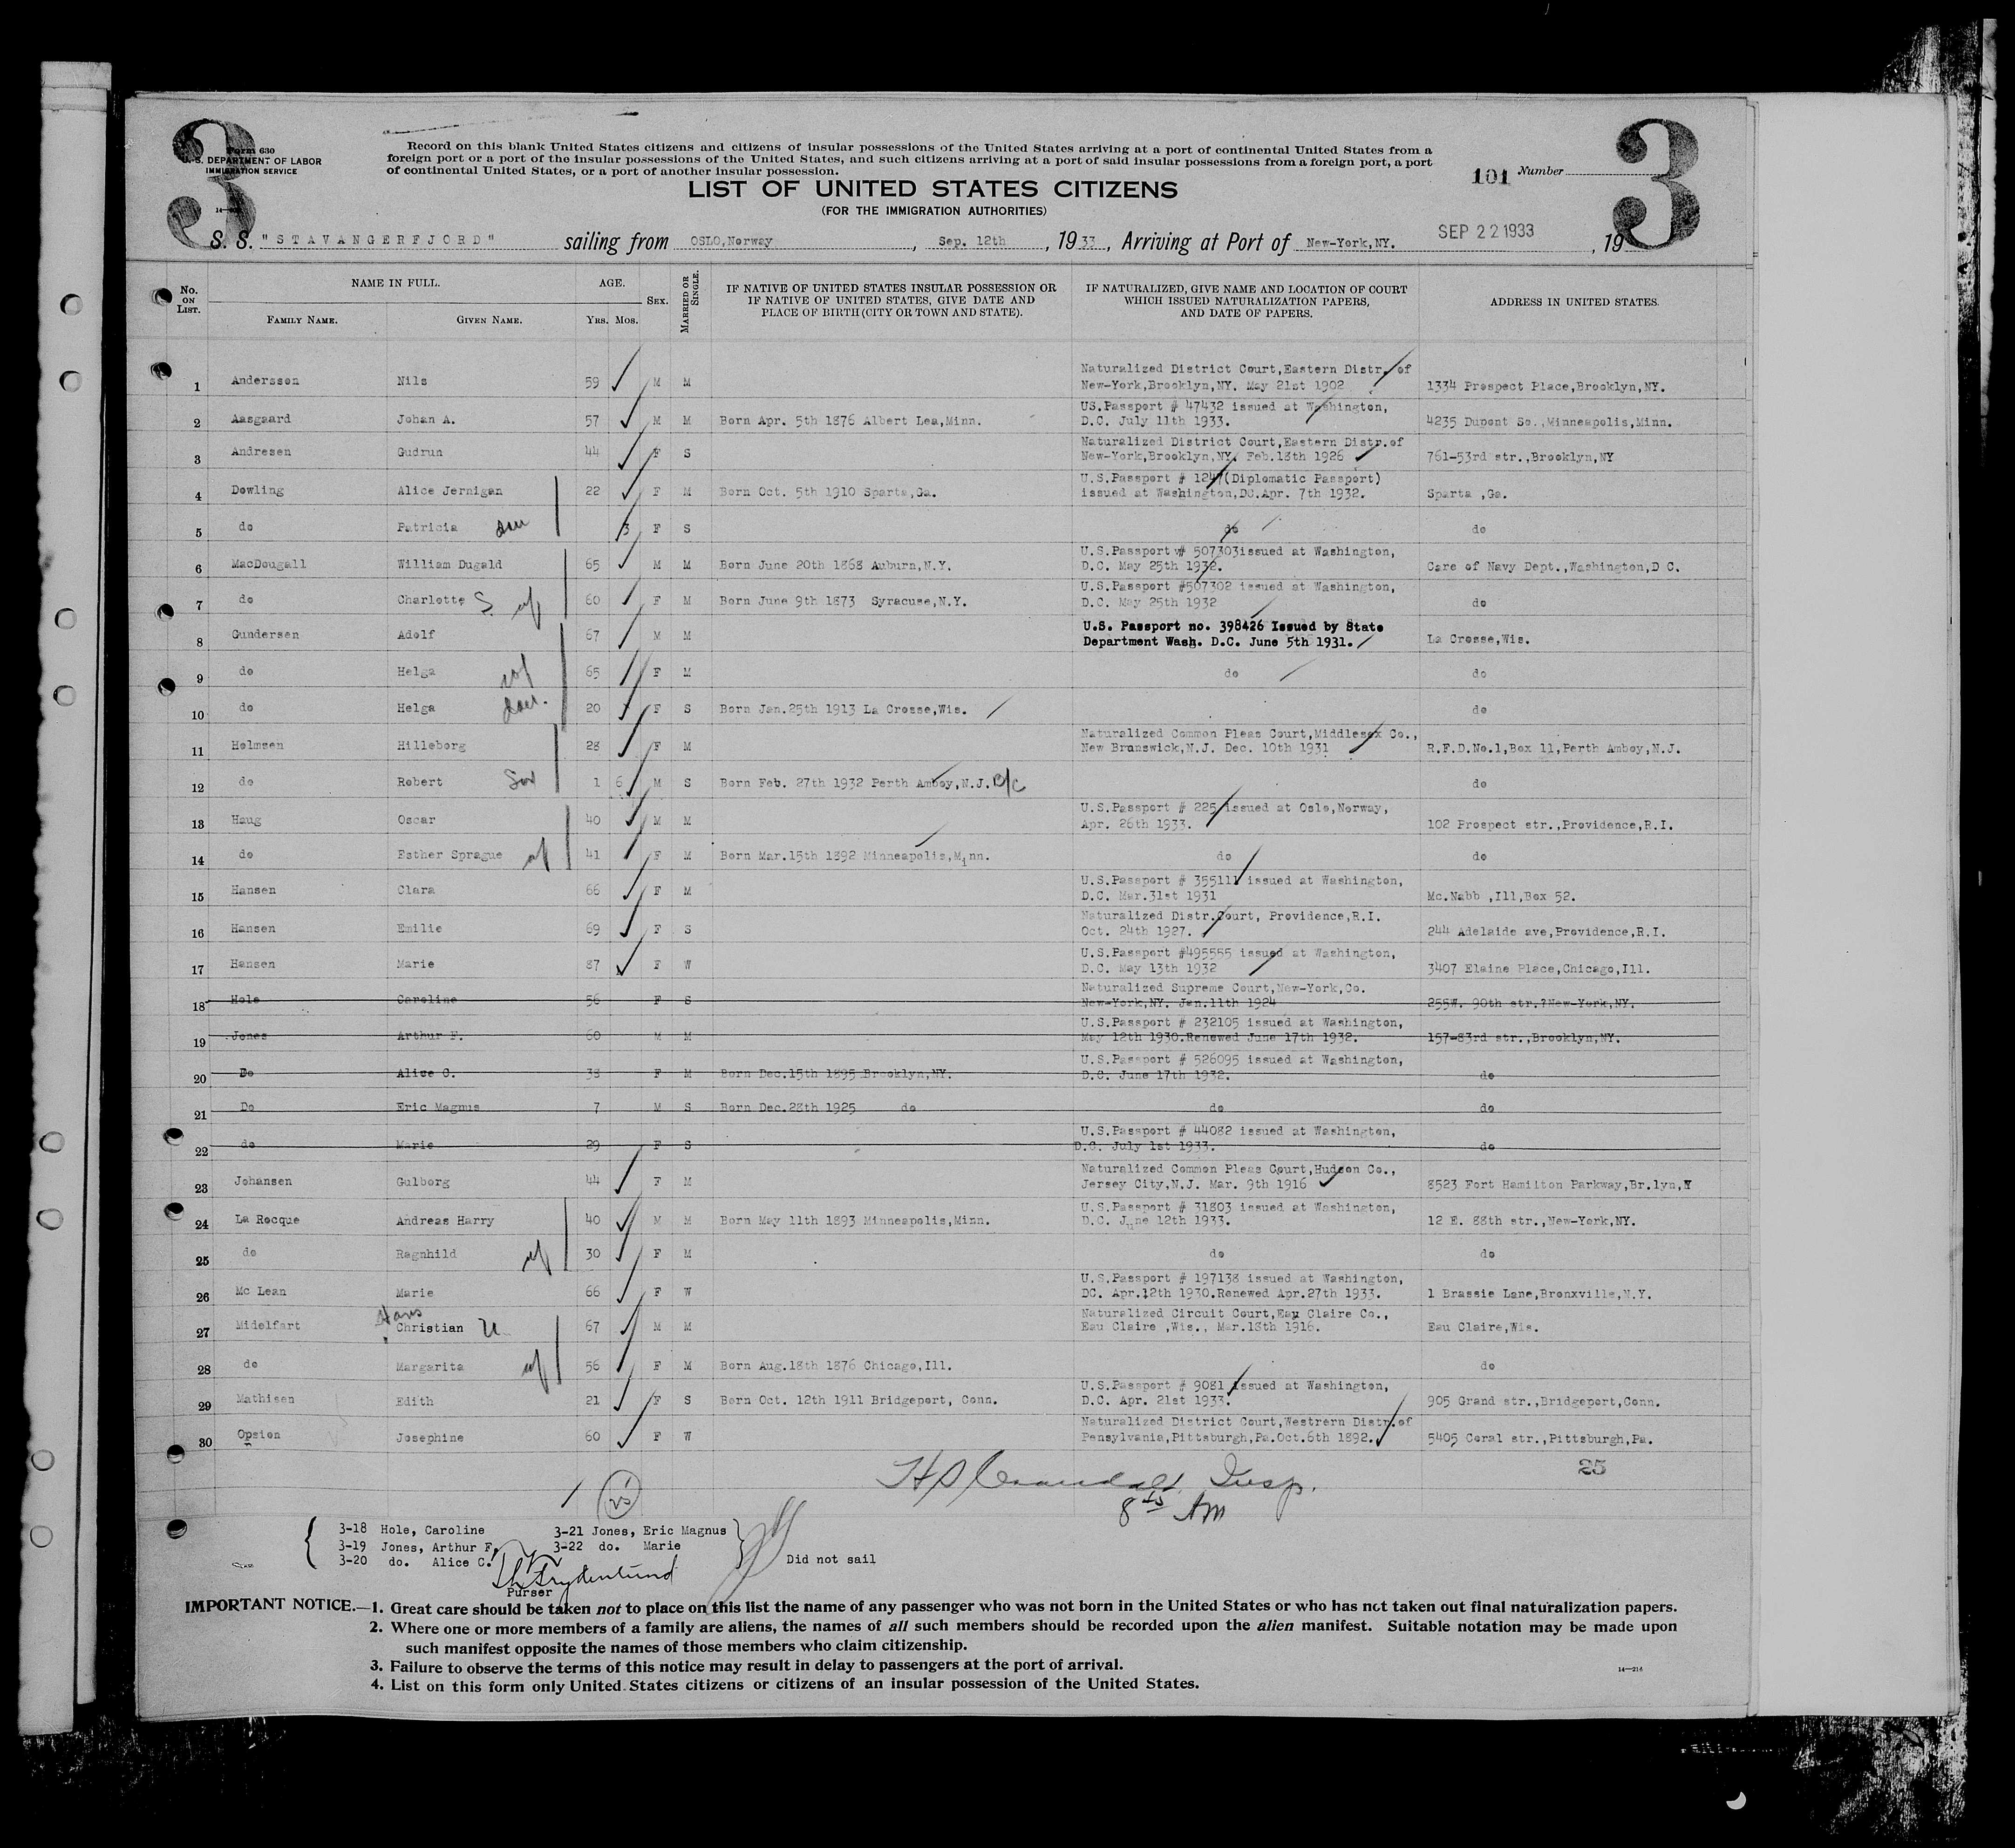 3
3
Form 630
U. S. DEPARTMENT OF LABOR
IMMIGRATION SERVICE
Record on this blank United States citizens and citizens of insular possessions of the United States arriving at a port of continental United States from a
foreign port or a port of the insular possessions of the United States, and such citizens arriving at a port of said insular possessions from a foreign port, a port
of continental United States, or a port of another insular possession.
101 Number
LIST OF UNITED STATES CITIZENS
(FOR THE IMMIGRATION AUTHORITIES)
S. S. "STAVANGERFJORD" sailing from OSLO,Norway , Sep. 12th , 1933, Arriving at Port of New-York,NY. SEP 22 1933 , 19
No. ON LIST. NAME IN FULL. FAMILY NAME. GIVEN NAME. AGE. YRS. MOS. SEX. MARRIED OR SINGLE. IF NATIVE OF UNITED STATES INSULAR POSSESSION OR IF NATIVE OF UNITED STATES, GIVE DATE AND PLACE OF BIRTH (CITY OR TOWN AND STATE). IF NATURALIZED, GIVE NAME AND LOCATION OF COURT WHICH ISSUED NATURALIZATION PAPERS, AND DATE OF PAPERS. ADDRESS IN UNITED STATES.
Naturalized District Court,Eastern Distr. of
1 Andersson Nils 59 M M New-York,Brooklyn,NY. May 21st 1902 1334 Prospect Place,Brooklyn,NY.
US.Passport # 47432 issued at Washington,
2 Aasgaard Johan A. 57 M M Born Apr. 5th 1876 Albert Lea,Minn. D.C. July 11th 1933. 4235 Dupont So.,Minneapolis,Minn.
Naturalized District Court,Eastern Distr.of
3 Andresen Gudrun 44 F S New-York,Brooklyn,NY. Feb.18th 1926 761-53rd str.,Brooklyn,NY
U.S.Passport # 1247(Diplomatic Passport)
4 Dowling Alice Jernigan 22 F M Born Oct. 5th 1910 Sparta,Ga. issued at Washington,DC.Apr. 7th 1932. Sparta ,Ga.
5 do Patricia dau 3 F S do do
U.S.Passport # 507303issued at Washington,
6 MacDougall William Dugald 65 M M Born June 20th 1868 Auburn,N.Y. D.C. May 25th 1932. Care of Navy Dept.,Washington,D C.
U.S.Passport #507302 issued at Washington,
7 do Charlotte S wf 60 F M Born June 9th 1873 Syracuse,N.Y. D.C. May 25th 1932 do
U.S. Passport no. 398426 Issued by State
8 Gundersen Adolf 67 M M Department Wash. D.C. June 5th 1931. La Crosse,Wis.
9 do Helga wf 65 F M do do
10 do Helga dau. 20 F S Born Jan.25th 1913 La Crosse,Wis. do
Naturalized Common Pleas Court,Middlesex Co.,
11 Holmsen Hilleborg 28 F M New Brunswick,N.J. Dec. 10th 1931 R.F.D.No.1,Box 11,Perth Amboy,N.J.
12 do Robert Son 1 6 M S Born Feb. 27th 1932 Perth Amboy,N.J. B/C do
U.S.Passport # 225 issued at Oslo,Norway,
13 Haug Oscar 40 M M Apr. 26th 1933. 102 Prospect str.,Providence,R.I.
14 do Esther Sprague wf 41 F M Born Mar.15th 1892 Minneapolis,Minn. do do
U.S.Passport # 355111 issued at Washington,
15 Hansen Clara 66 F M D.C. Mar.31st 1931 Mc.Nabb ,Ill,Box 52.
Naturalized Distr.Court, Providence,R.I.
16 Hansen Emilie 69 F S Oct. 24th 1927. 244 Adelaide ave,Providence,R.I.
U.S.Passport #495555 issued at Washington,
17 Hansen Marie 87 F W D.C. May 13th 1932 3407 Elaine Place,Chicago,Ill.
Naturalized Supreme Court,New-York,Co.
18 Hole Caroline 56 F S New-York,NY. Jan.11th 1924 255W. 90th str.?New-York,NY.
U.S.Passport # 232105 issued at Washington,
19 Jones Arthur F. 60 M M May 12th 1930.Renewed June 17th 1932. 157-83rd str.,Brooklyn,NY.
U.S.Passport # 526095 issued at Washington,
20 Do Alice C. 38 F M Born Dec.15th 1895 Brooklyn,NY. D.C. June 17th 1932. do
21 Do Eric Magnus 7 M S Born Dec.28th 1925 do do do
U.S.Passport # 44082 issued at Washington,
22 do Marie 29 F S D.C. July 1st 1933. do
Naturalized Common Pleas Court,Hudson Co.,
23 Johansen Gulborg 44 F M Jersey City,N.J. Mar. 9th 1916 8523 Fort Hamilton Parkway,Br.lyn,Y
U.S.Passport # 31803 issued at Washington,
24 La Rocque Andreas Harry 40 M M Born May 11th 1893 Minneapolis,Minn. D.C. June 12th 1933. 12 E. 88th str.,New-York,NY.
25 do Ragnhild wf 30 F M do do
U.S.Passport # 197138 issued at Washington,
26 Mc Lean Marie 66 F W DC. Apr.12th 1930.Renewed Apr.27th 1933. 1 Brassie Lane,Bronxville,N.Y.
Hans Naturalized Circuit Court,Eau Claire Co.,
27 Midelfart Christian U 67 M M Eau Claire ,Wis., Mar.18th 1916. Eau Claire,Wis.
28 do Margarita wf 56 F M Born Aug.18th 1876 Chicago,Ill. do
U.S.Passport # 9081 issued at Washington,
29 Mathisen Edith 21 F S Born Oct. 12th 1911 Bridgeport, Conn. D.C. Apr. 21st 1933. 905 Grand str.,Bridgeport,Conn.
Naturalized District Court,Westrern Distr.of
30 Opsion Josephine 60 F W Pensylvania,Pittsburgh,Pa.Oct.6th 1892. 5405 Coral str.,Pittsburgh,Pa.
25
Insp.
8 15 AM
3-18 Hole, Caroline 3-21 Jones, Eric Magnus
3-19 Jones, Arthur F. 3-22 do. Marie
3-20 do. Alice C. Did not sail
Purser
IMPORTANT NOTICE.—1. Great care should be taken not to place on this list the name of any passenger who was not born in the United States or who has not taken out final naturalization papers.
2. Where one or more members of a family are aliens, the names of all such members should be recorded upon the alien manifest. Suitable notation may be made upon
such manifest opposite the names of those members who claim citizenship.
3. Failure to observe the terms of this notice may result in delay to passengers at the port of arrival.
14—216
4. List on this form only United States citizens or citizens of an insular possession of the United States.